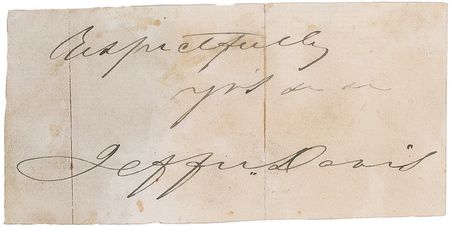 Respectfully
yrs &c &c
Jeffn. Davis